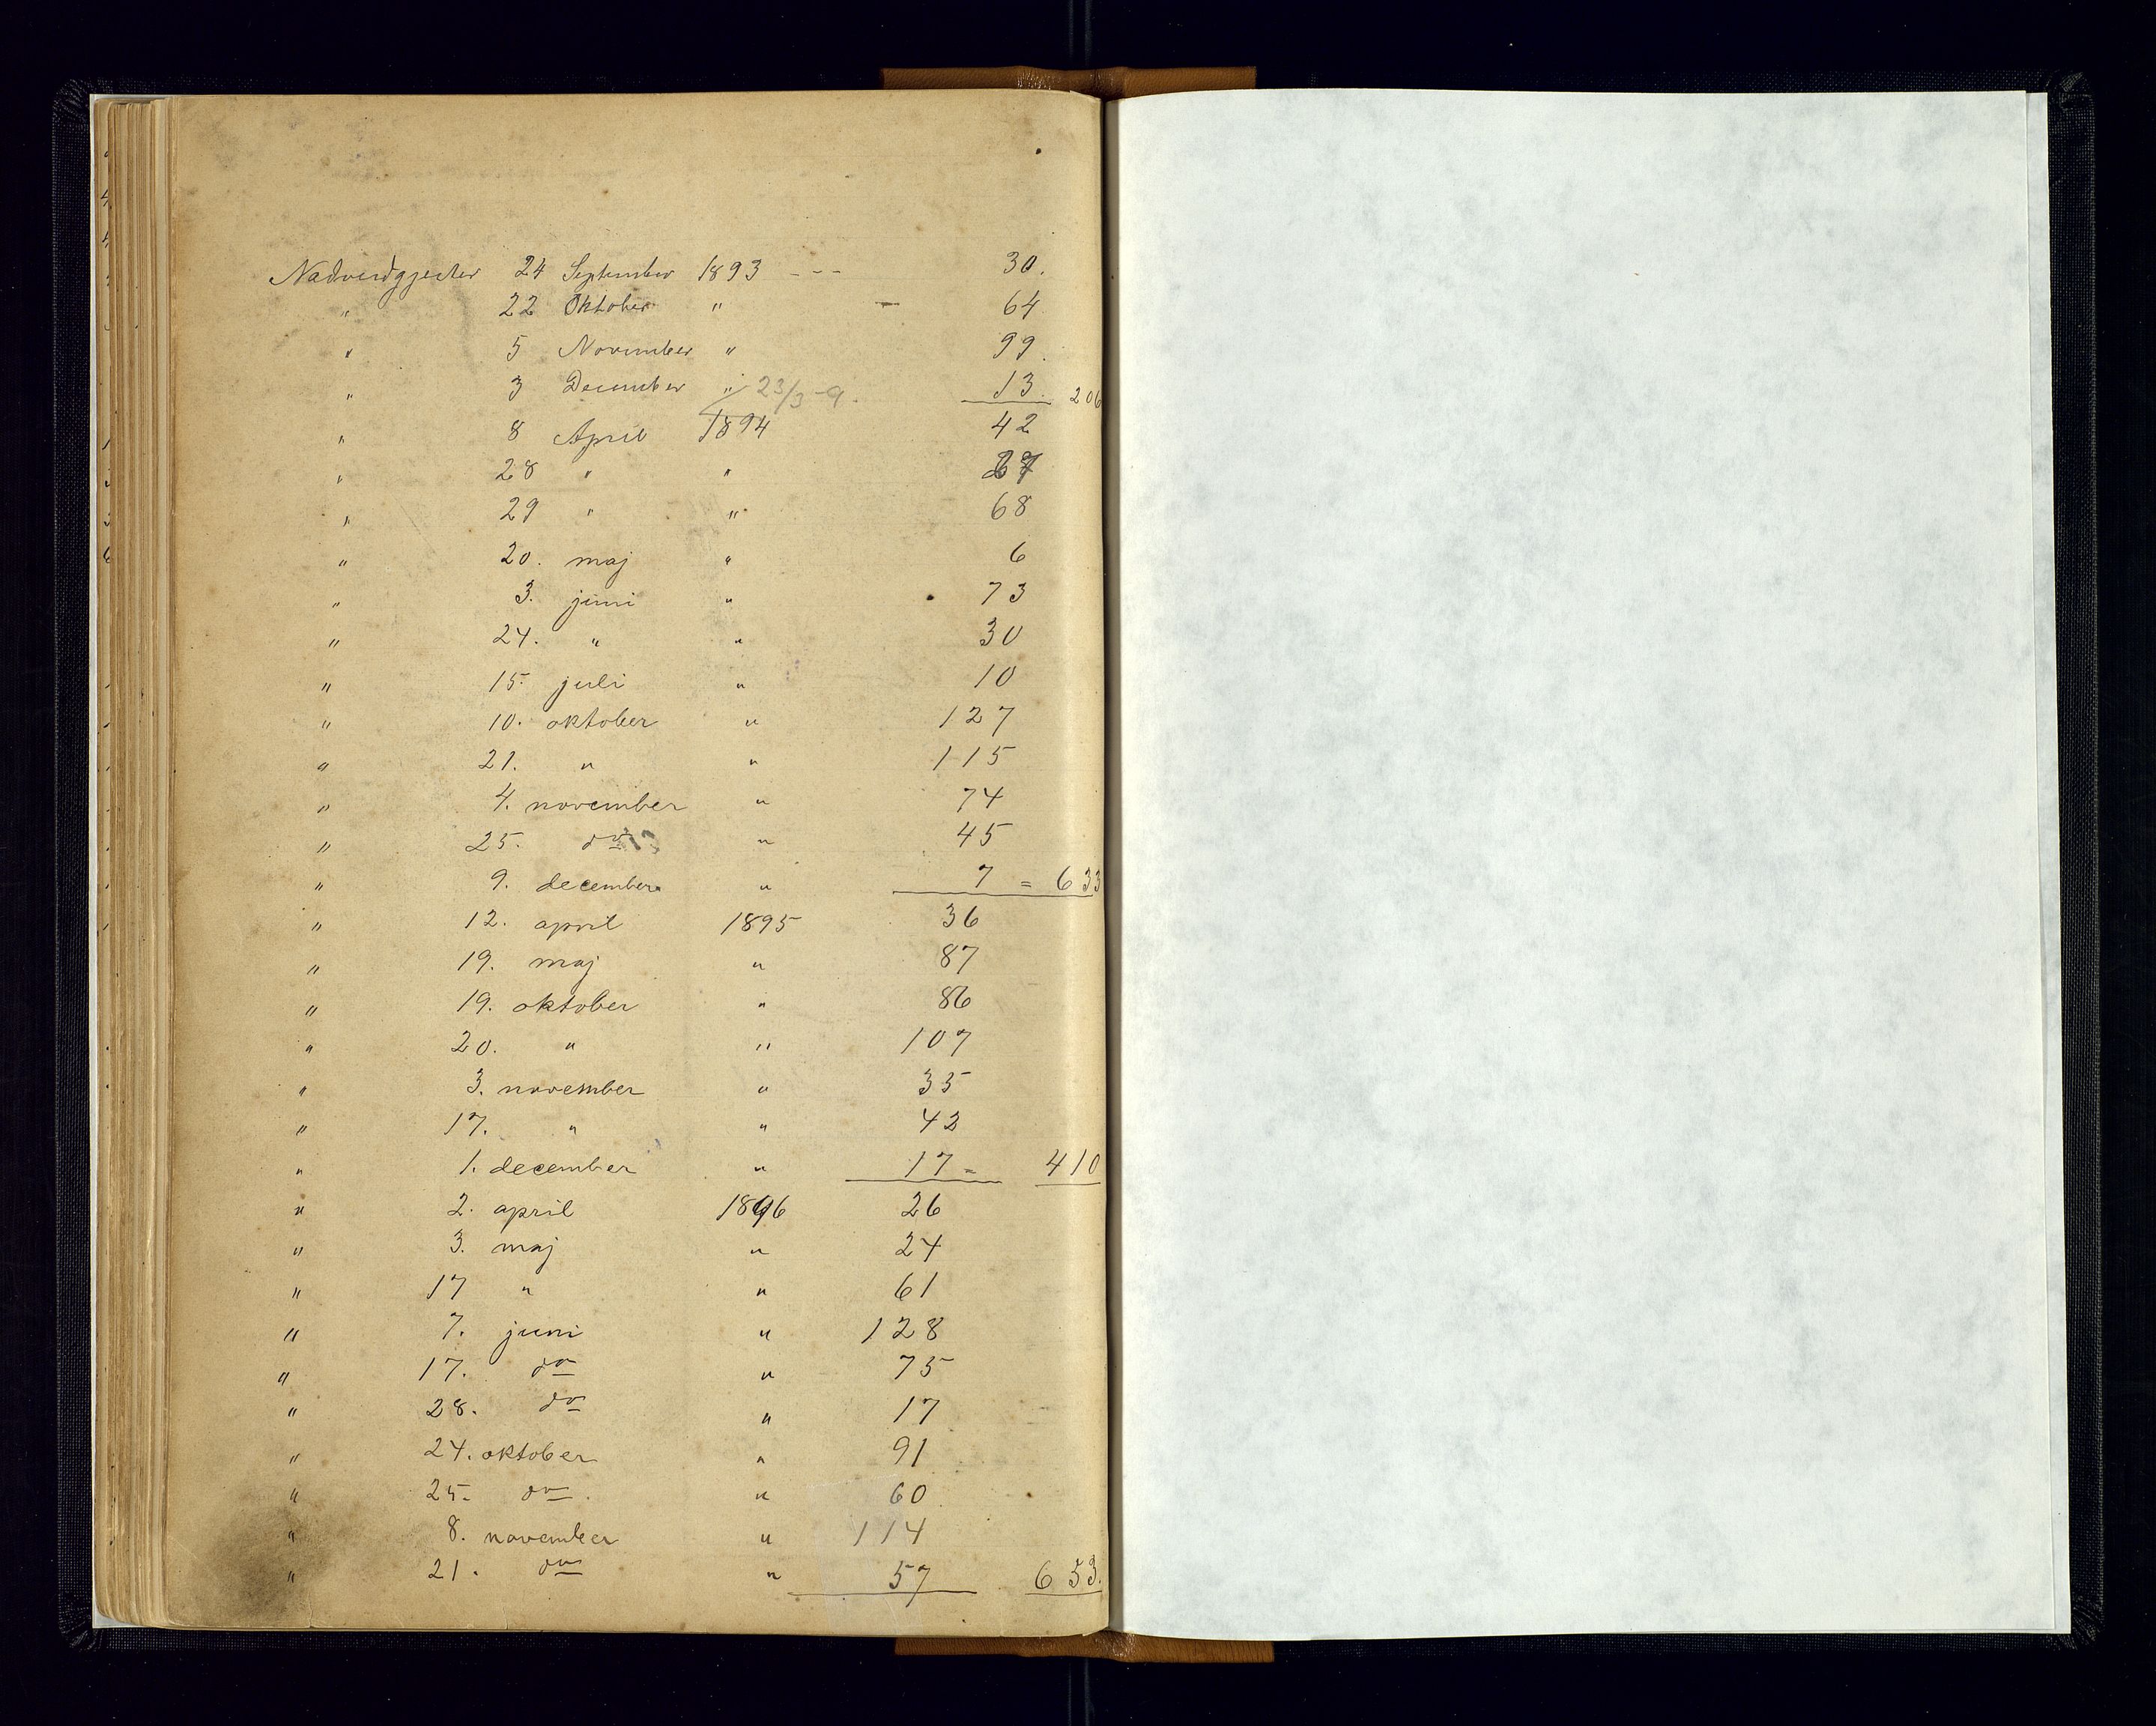 Nadverdgjester 24 September 1893 - - - 30.
" 22 Oktober " - 64
" 5 November " 99.
" 3 December " 23/3 - 9. 13. 206
" 8 April 1894 42
" 28 " "
" 29 " " 68
" 20. maj " 6
" 3. juni " 73
" 24. " " 30
" 15. juli " 10
" 10. oktober " 127
" 21. " " 115
" 4. november " 74
" 25. do " 45
" 9. december " 7 = 633
" 12. april 1895 36
" 19. maj " 87
" 19. oktober " 86
" 20. " " 107
" 3. november " 35
" 17. " " 42
" 1. december " 17 = 410
" 2. april 1896 26
" 3. maj " 24
" 17 " " 61
" 7. juni " 128
" 17. do " 75
" 28. do " 17
" 24. oktober " 91
" 25. do. " 60
" 8. november " 114
" 21. do " 57 653.